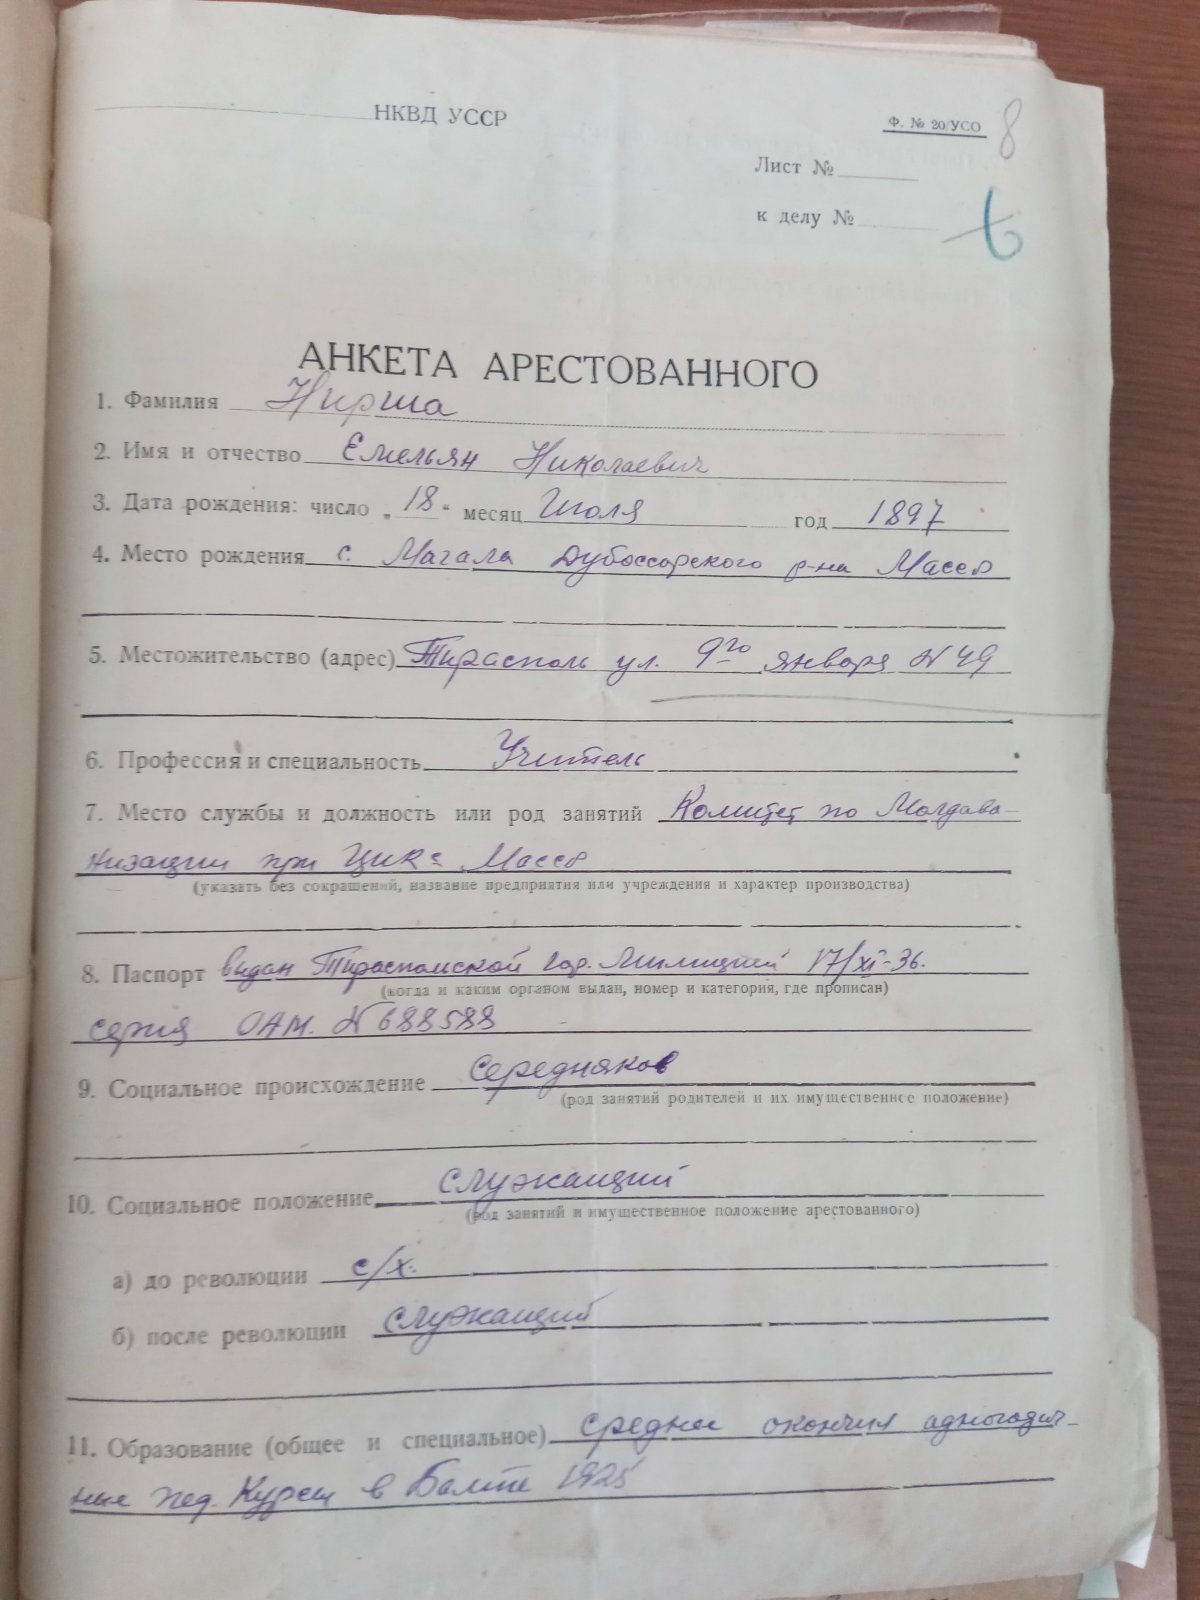 НКВД УССР
Ф. № 20/УСО
8
Лист №
к делу №
АНКЕТА АРЕСТОВАННОГО
1. Фамилия Нирша
2. Имя и отчество Емельян Николаевич
3. Дата рождения: число „18“ месяц Июля год 1897
4. Место рождения с. Магала Дубоссарского р-на Масср
5. Местожительство (адрес) Тирасполь ул. 9го января N 49
6. Профессия и специальность Учитель
7. Место службы и должность или род занятий Комитет по Молдава-
низации при ЦИКе Масср
(указать без сокращений, название предприятия или учреждения и характер производства)
8. Паспорт выдан Тираспольской гор. Милицией 17/XI-36.
(когда и каким органом выдан, номер и категория, где прописан)
серия ОАМ. N 688588
9. Социальное происхождение Середняков
(род занятий родителей и их имущественное положение)
10. Социальное положение служащий
(род занятий и имущественное положение арестованного)
а) до революции с/х.
б) после революции служащий
11. Образование (общее и специальное) среднее окончил адногодич-
ные пед. Курсы в Балте 1925